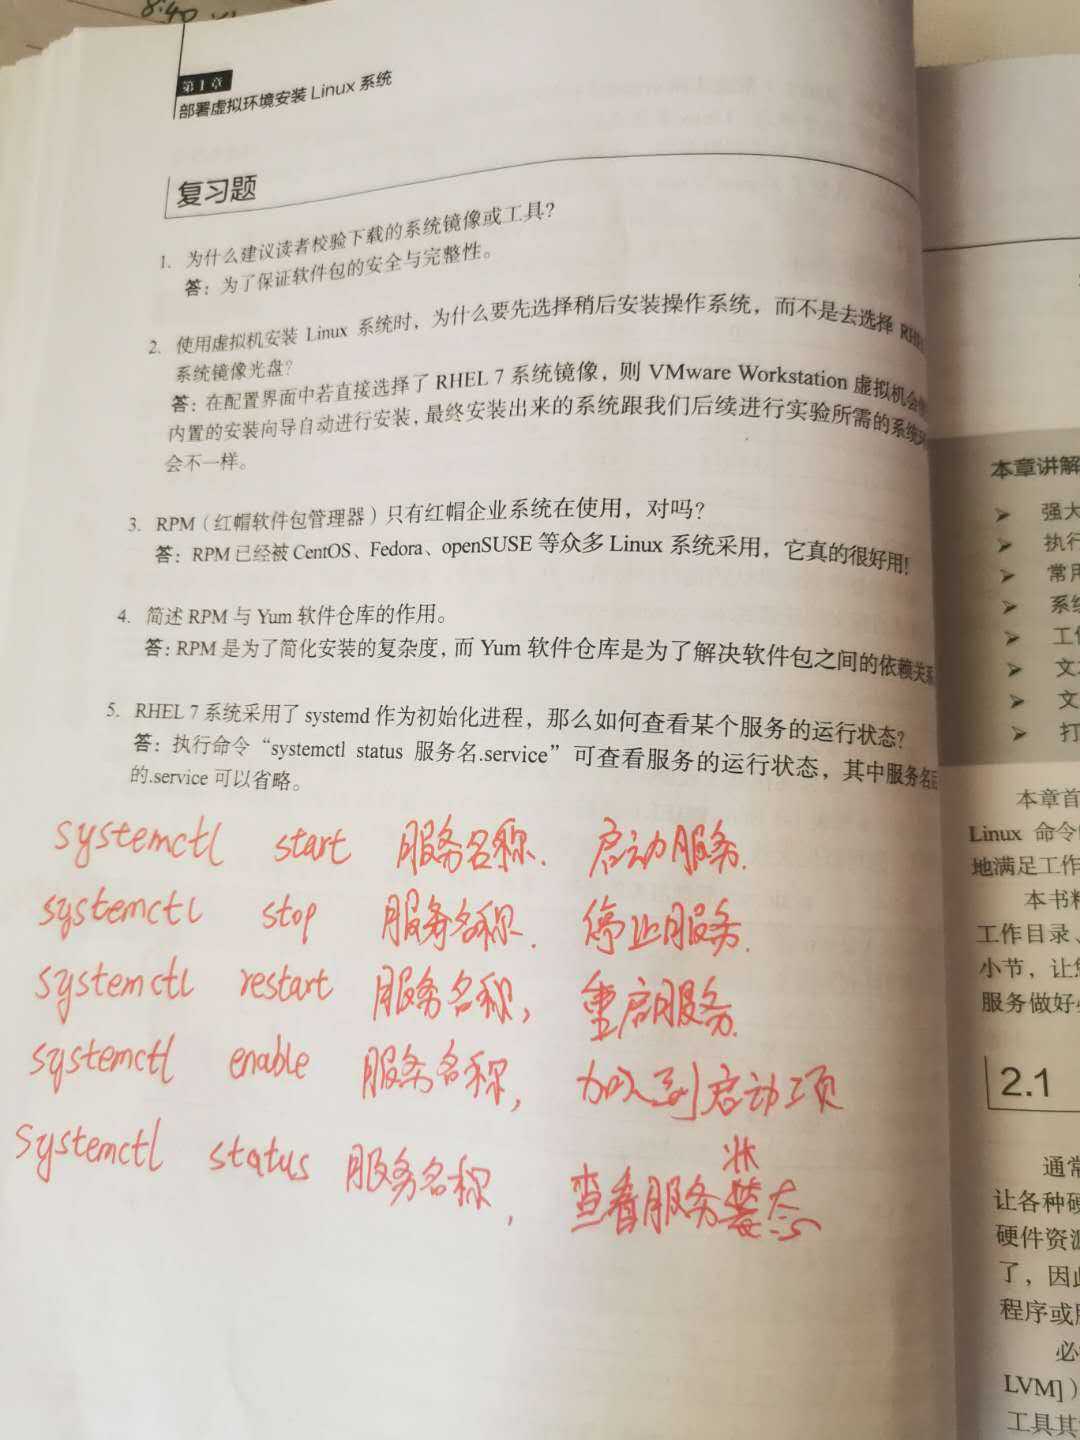 8:40
第1章
部署虚拟环境安装 Linux 系统
复习题
1. 为什么建议读者校验下载的系统镜像或工具？
答：为了保证软件包的安全与完整性。
2. 使用虚拟机安装 Linux 系统时，为什么要先选择稍后安装操作系统，而不是去选择 RHEL
系统镜像光盘？
答：在配置界面中若直接选择了 RHEL 7 系统镜像，则 VMware Workstation 虚拟机会
内置的安装向导自动进行安装，最终安装出来的系统跟我们后续进行实验所需的系统
会不一样。
3. RPM（红帽软件包管理器）只有红帽企业系统在使用，对吗？
答：RPM 已经被 CentOS、Fedora、openSUSE 等众多 Linux 系统采用，它真的很好用！
4. 简述 RPM 与 Yum 软件仓库的作用。
答：RPM 是为了简化安装的复杂度，而 Yum 软件仓库是为了解决软件包之间的依赖关系
5. RHEL 7 系统采用了 systemd 作为初始化进程，那么如何查看某个服务的运行状态？
答：执行命令“systemctl status 服务名.service”可查看服务的运行状态，其中服务名后
的.service 可以省略。
systemctl start 服务名称. 启动服务.
systemctl stop 服务名称. 停止服务.
systemctl restart 服务名称, 重启服务.
systemctl enable 服务名称, 加入到启动项
systemctl status 服务名称, 查看服务状态
本章讲解
➤ 强大
➤ 执行
➤ 常用
➤ 系统
➤ 工作
➤ 文本
➤ 文
➤ 打
本章首
Linux 命令
地满足工作
本书精
工作目录、
小节，让您
服务做好必
2.1
通常
让各种硬
硬件资源
了，因此
程序或服
必
LVM]）
工具其